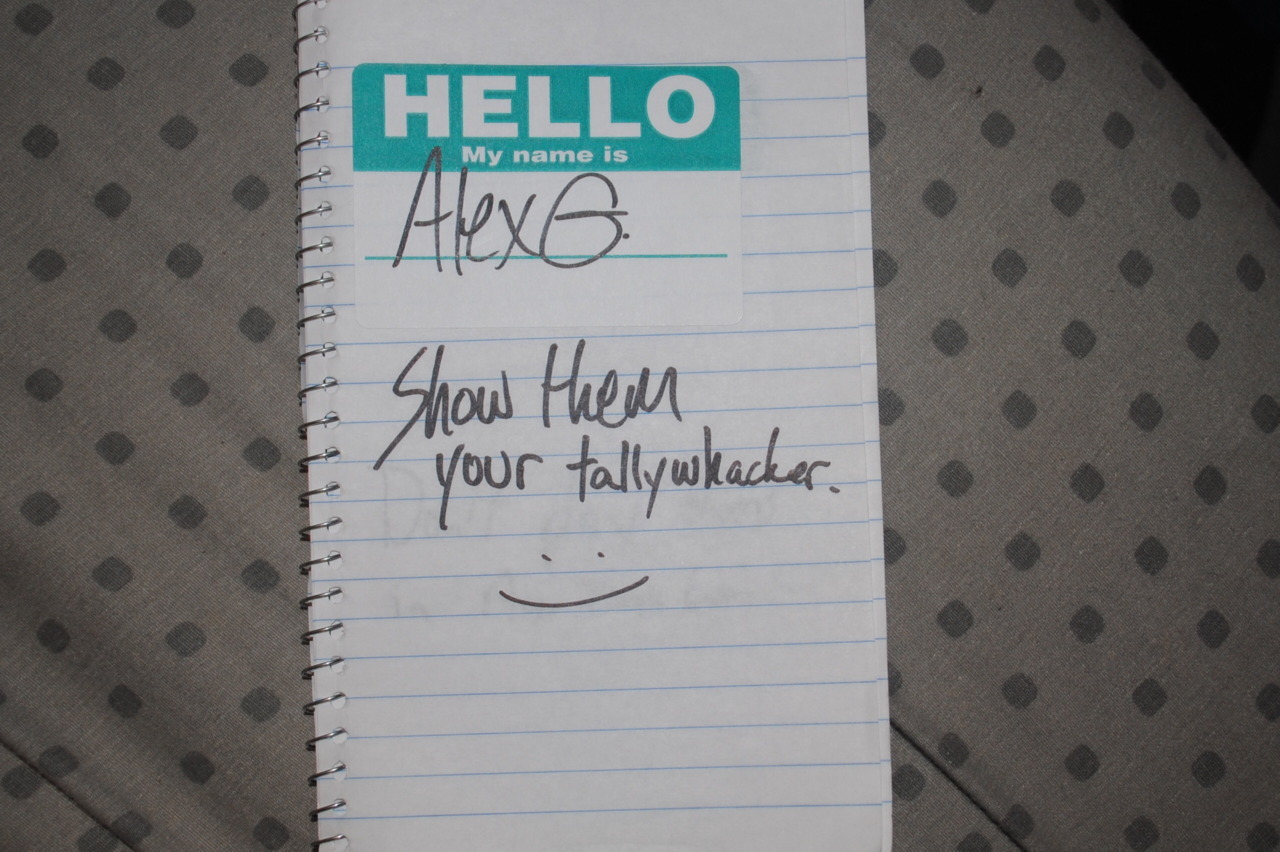 HELLO
My name is
Alex G.
Show them
your tallywhacker.